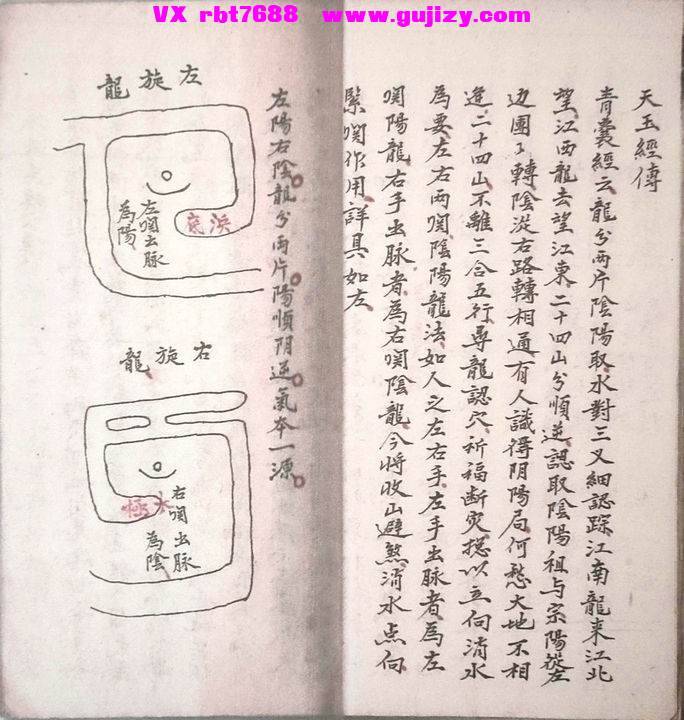 VX rbt7688 www.gujizy.com
天玉經傳
青囊經云龍分兩片陰陽取水對三叉細認踪江南龍來江北
望江西龍去望江東二十四山分順逆認取陰陽祖与宗陽從左
边團〻轉陰從右路轉相通有人識得阴陽局何愁大地不相
逢二十四山不離三合五行尋龍認穴祈福断灾揔以立向消水
為要左右兩関陰陽龍法如人之左右手左手出脉者為左
関陽龍右手出脉者為右関陰龍今將收山避煞消水点向
緊関作用詳具如左
左陽右陰龍分兩片陽順阴逆氣本一源
左旋龍
左関出脉
為陽
浜底
右旋龍
右関出脉
為陰
水極